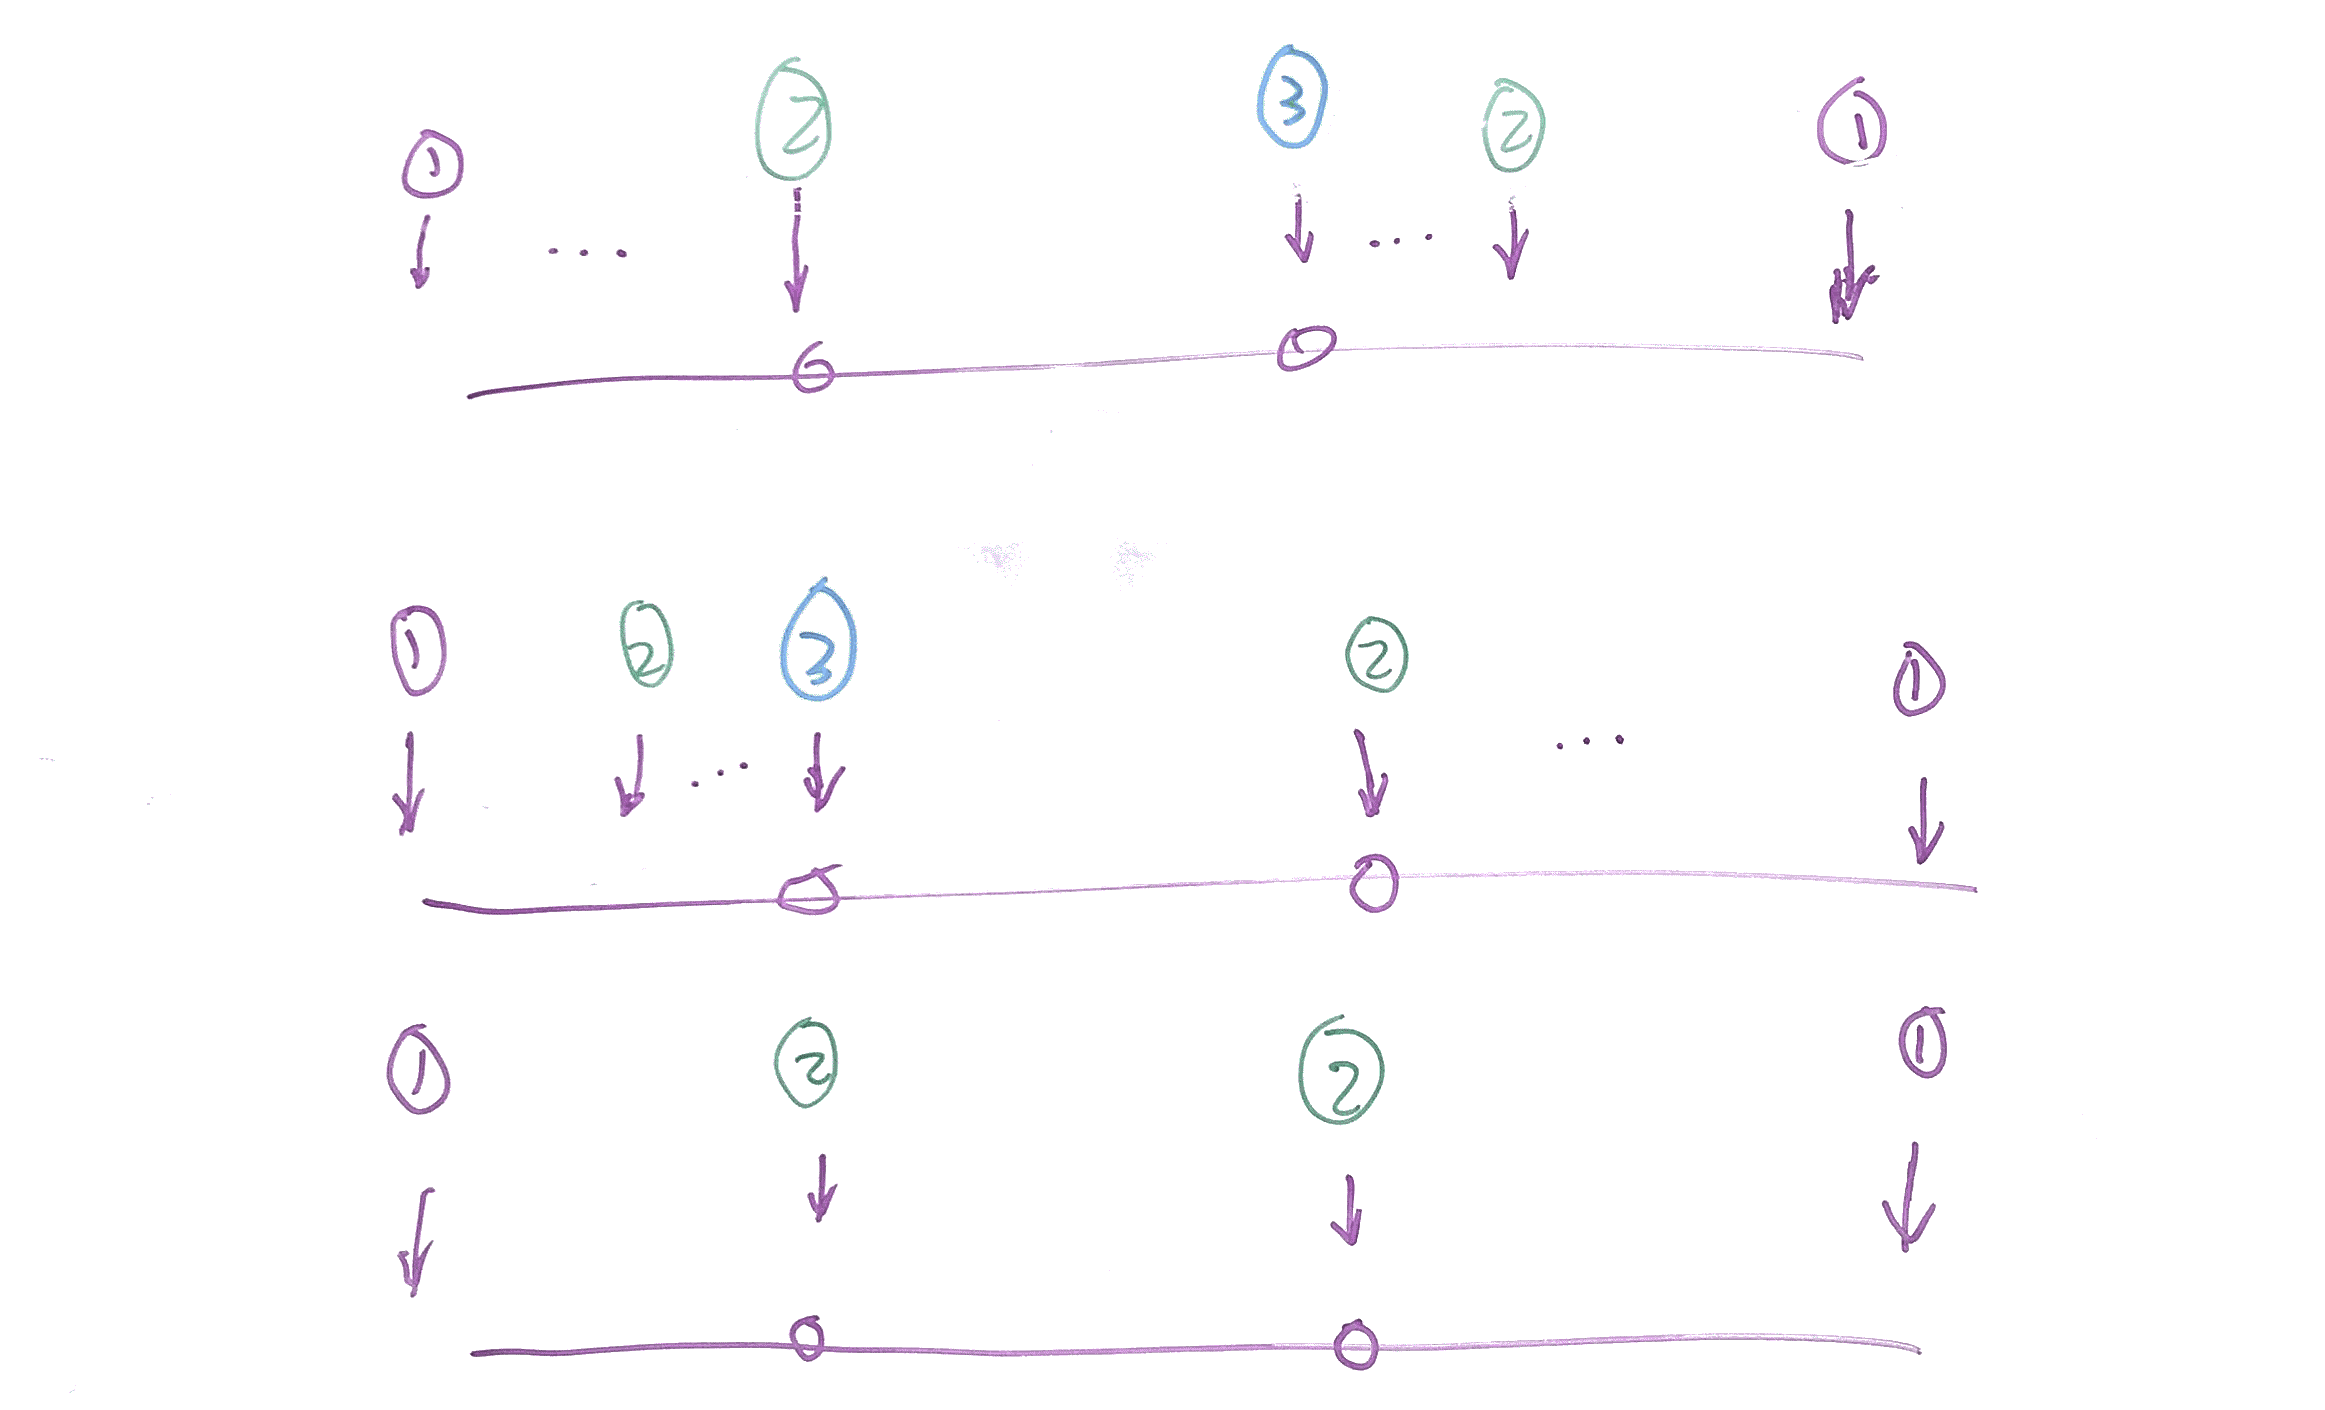 1 2 3 2 1
... ...
1 2 3 2 1
... ...
1 2 2 1